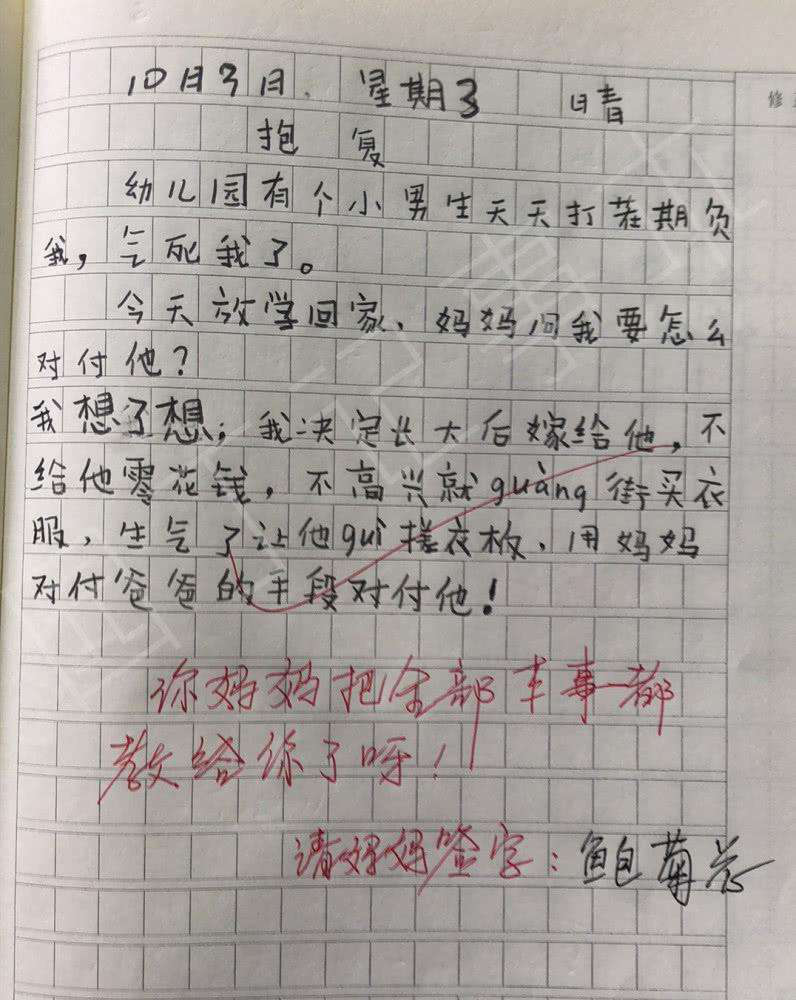 10月3日. 星期3 日青
抱复
幼儿园有个小男生天天打茬期负
我,气死我了。
今天放学回家、妈妈问我要怎么
对付他?
我想了想;我决定长大后嫁给他,不
给他零花钱,不高兴就guàng街买衣
服,生气了让他guì搓衣板、用妈妈
对付爸爸的手段对付他!
你妈妈把全部本事都
教给你了呀!
请妈妈签字:鲍菊
修